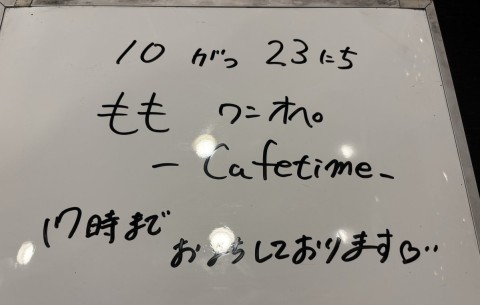 10 がつ 23 にち
もも ワニオペ。
- Cafetime -
17時まで
おまちしております♡..